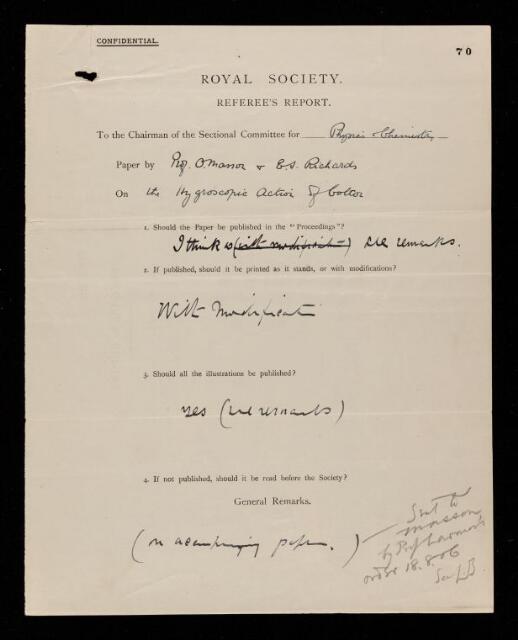 CONFIDENTIAL.
70
ROYAL SOCIETY.
REFEREE'S REPORT.
To the Chairman of the Sectional Committee for Physics & Chemistry
Paper by Prof. O. Masson & E.S. Richards
On the Hygroscopic Action of Cotton
1. Should the Paper be published in the "Proceedings"?
I think so (with modification) see remarks.
2. If published, should it be printed as it stands, or with modifications?
With Modification
3. Should all the illustrations be published?
yes (see remarks)
4. If not published, should it be read before the Society?
General Remarks.
(on accompanying paper.)
Sent to
Masson
by Prof Larmor's
order 18.8.06